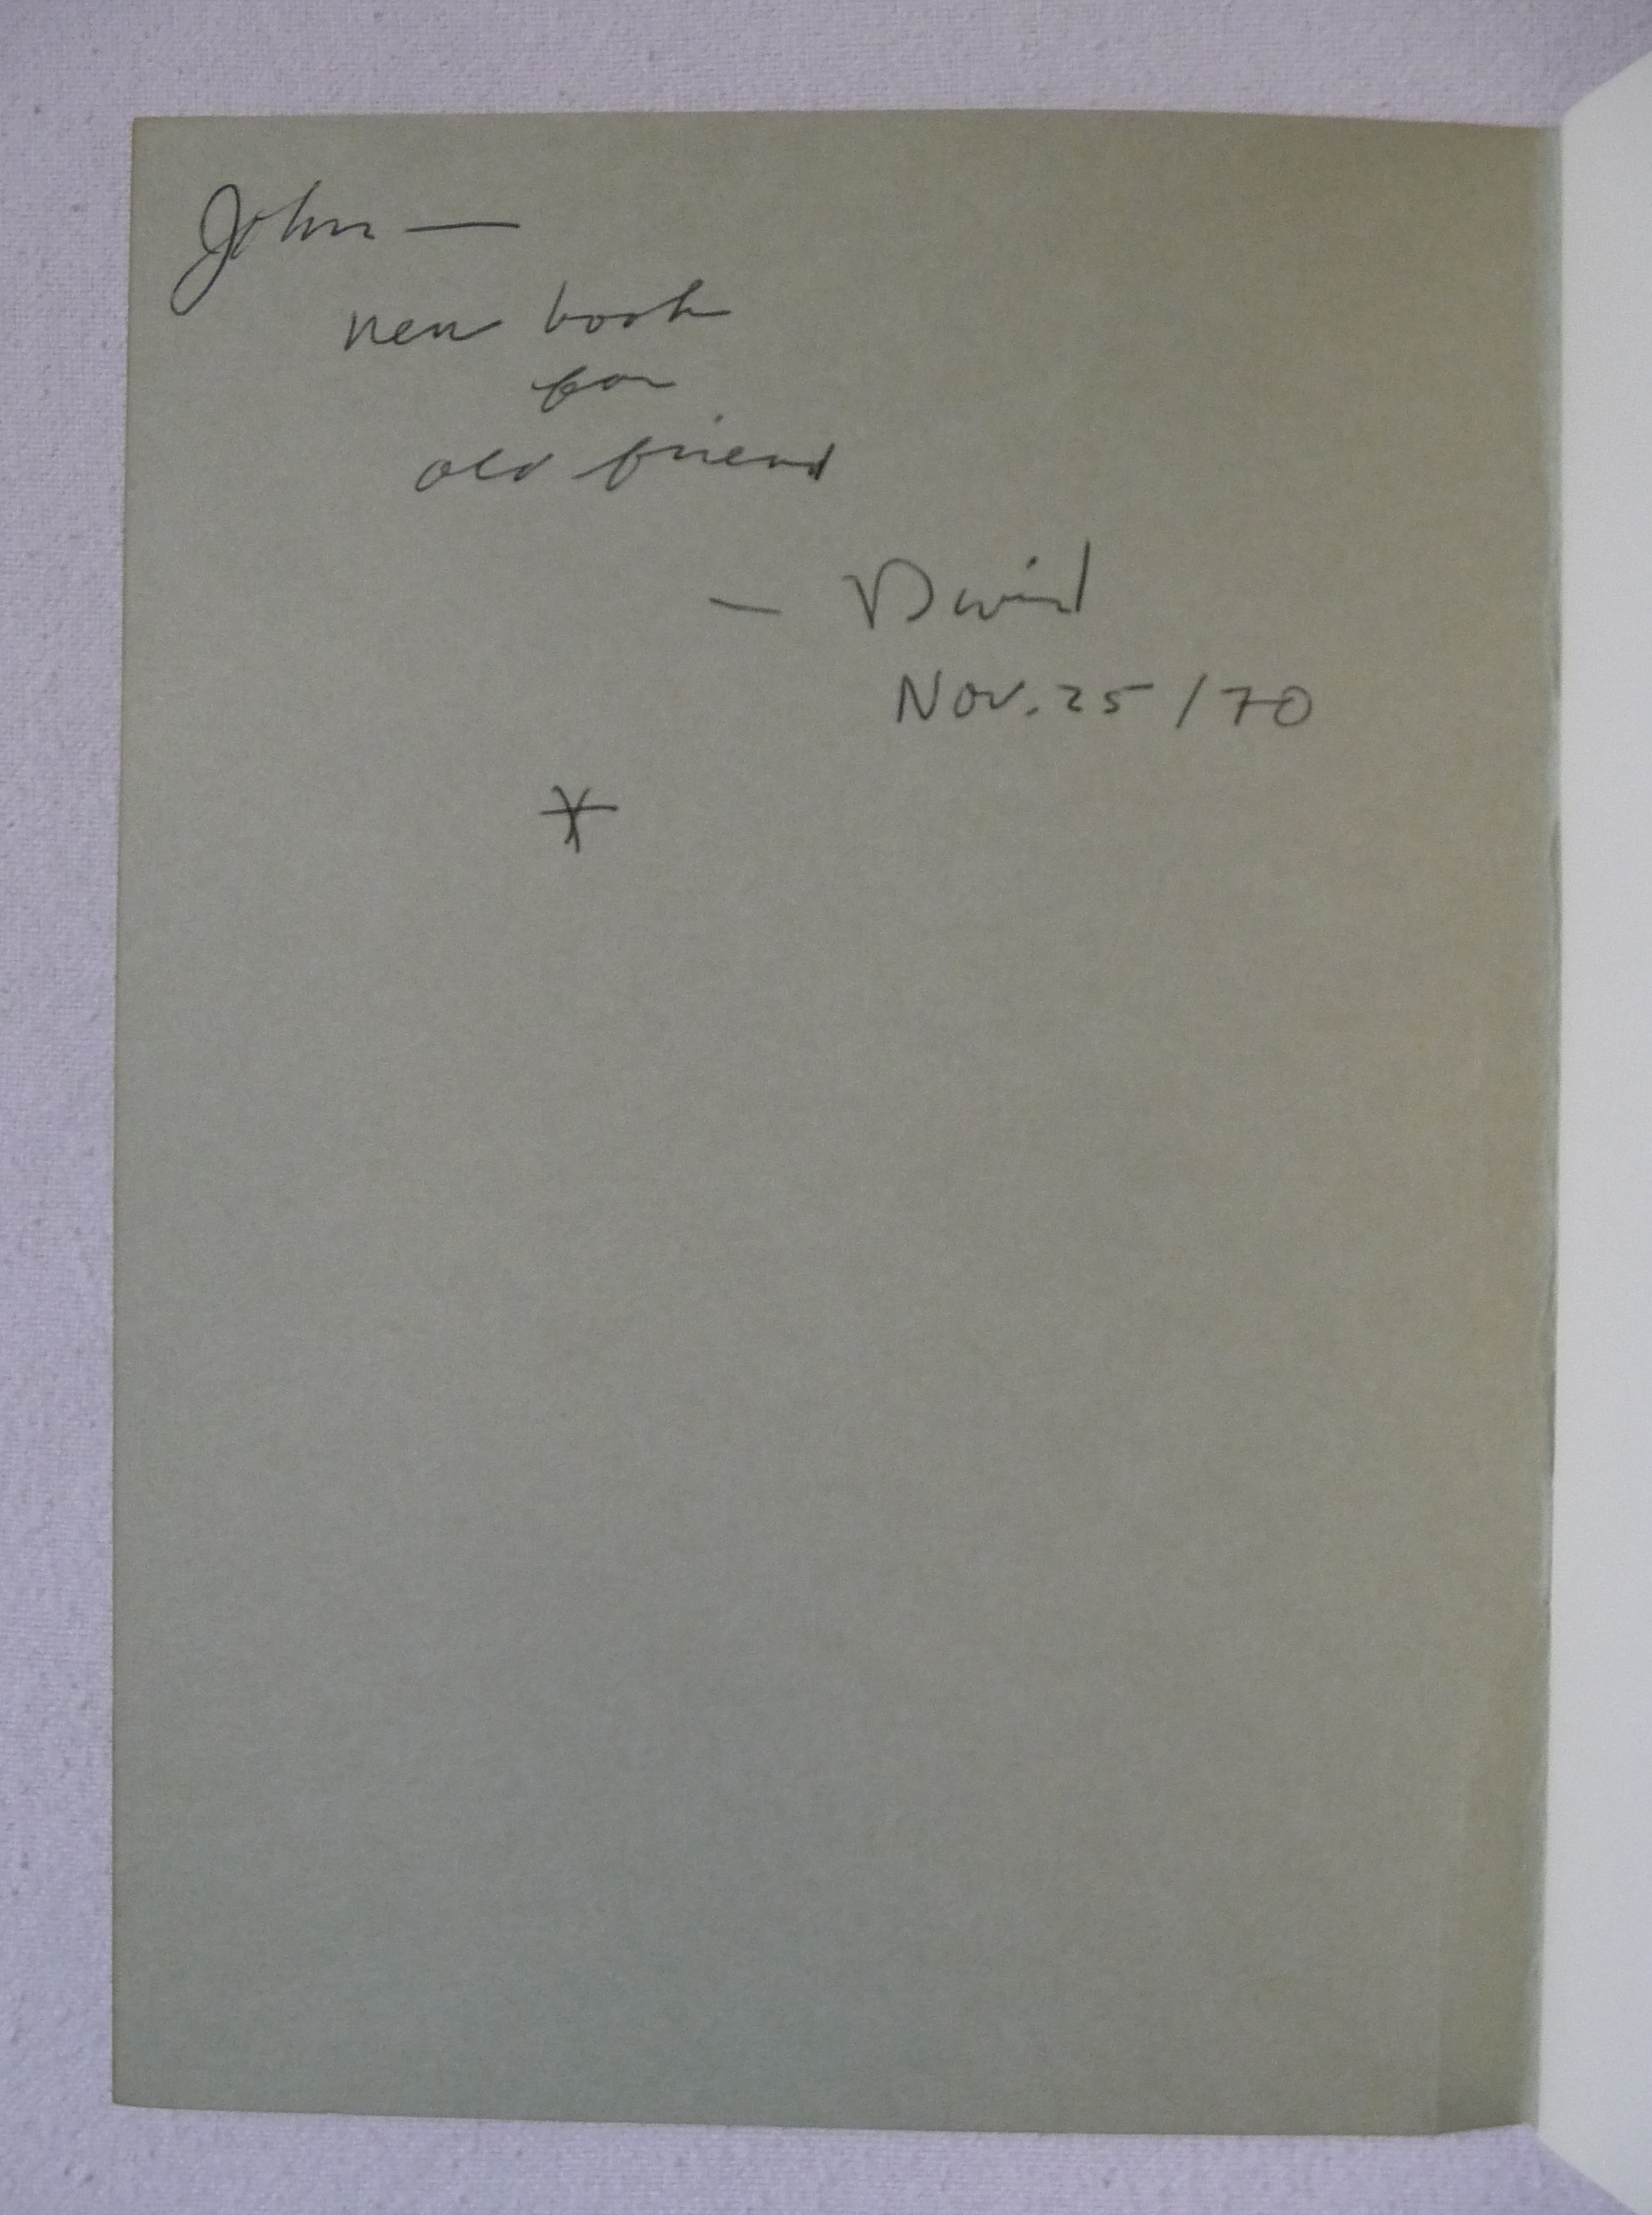 John —
new book
for
old friend
— David
Nov. 25 / 70
*